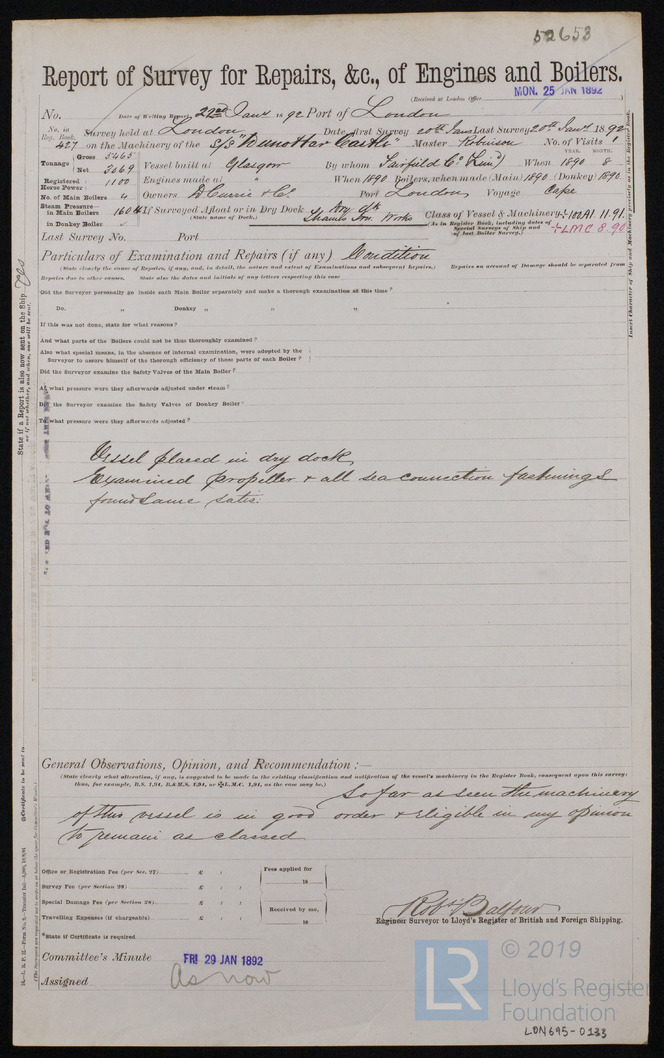 52653
Report of Survey for Repairs, &c., of Engines and Boilers.
(Received at London Office MON. 25 JAN 1892
No. Date of Writing Report 22nd Jany 1892 Port of London
No. in Reg. Book. Survey held at London Date, first Survey 20th Jany Last Survey 20th Jany 1892
427 on the Machinery of the S/S "Dunottar Castle" Master Robinson No. of Visits 1
Tonnage Gross 5465 Net 3069 Vessel built at Glasgow By whom Fairfield Co. (Lim'd) When YEAR. 1890 MONTH. 8
Registered Horse Power 1100 Engines made at " When 1890 Boilers, when made (Main) 1890 (Donkey) 1890
No. of Main Boilers 4 Owners D Currie & Co. Port London Voyage Cape
Steam Pressure in Main Boilers 160 If Surveyed Afloat or in Dry Dock Dry dk Thames Iron Works Class of Vessel & Machinery 100A1 11.91
in Donkey Boiler (State name of Dock.) (As in Register Book, including dates of Special Surveys of Ship and of last Boiler Survey.) +LMC 8.90
Last Survey No. Port
Particulars of Examination and Repairs (if any) Condition
(State clearly the cause of Repairs, if any, and, in detail, the nature and extent of Examinations and subsequent repairs; Repairs on account of Damage should be separated from
Repairs due to other causes. State also the dates and initials of any letters respecting this case
Did the Surveyor personally go inside each Main Boiler separately and make a thorough examination at this time?
Do. " Donkey " " "
If this was not done, state for what reasons?
And what parts of the Boilers could not be thus thoroughly examined?
Also what special means, in the absence of internal examination, were adopted by the
Surveyor to assure himself of the thorough efficiency of those parts of each Boiler?
Did the Surveyor examine the Safety Valves of the Main Boiler?
At what pressure were they afterwards adjusted under steam?
Did the Surveyor examine the Safety Valves of Donkey Boiler
To what pressure were they afterwards adjusted?
Vessel placed in dry dock
Examined propeller & all sea connection fastenings
found same satis.
General Observations, Opinion, and Recommendation :—
(State clearly what alteration, if any, is suggested to be made in the existing classification and notification of the vessel's machinery in the Register Book, consequent upon this survey;
thus, for example, B.S. 1,94, B.&M.S. 1,94, or ✠L.M.C. 1,94, as the case may be.)
So far as seen the machinery
of this vessel is in good order & eligible in my opinion
to remain as classed
Office or Registration Fee (per Sec. 27) £ : : Fees applied for
Survey Fee (per Section 28) £ : : 18
Special Damage Fee (per Section 28) £ : : Received by me,
Travelling Expenses (if chargeable) £ : : 18
Robt Balfour
Engineer Surveyor to Lloyd's Register of British and Foreign Shipping.
*State if Certificate is required
Committee's Minute FRI 29 JAN 1892
Assigned As now
State if a Report is also now sent on the Ship Yes
or if not whether, and when, one will be sent.
Certificate to be sent to
Insert Character of Ship and Machinery precisely as in the Register Book.
© 2019
LR
Lloyd's Register
Foundation
LON695-0133